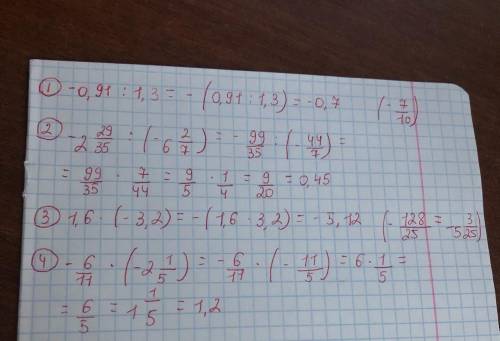 ① -0,91 : 1,3 = - (0,91 : 1,3) = -0,7 (-7/10)
② -2 29/35 : (-6 2/7) = - 99/35 : (-44/7) =
= 99/35 · 7/44 = 9/5 · 1/4 = 9/20 = 0,45
③ 1,6 · (-3,2) = -(1,6 · 3,2) = -5,12 (-128/25 = -5 3/25)
④ -6/11 · (-2 1/5) = -6/11 · (-11/5) = 6 · 1/5 =
= 6/5 = 1 1/5 = 1,2